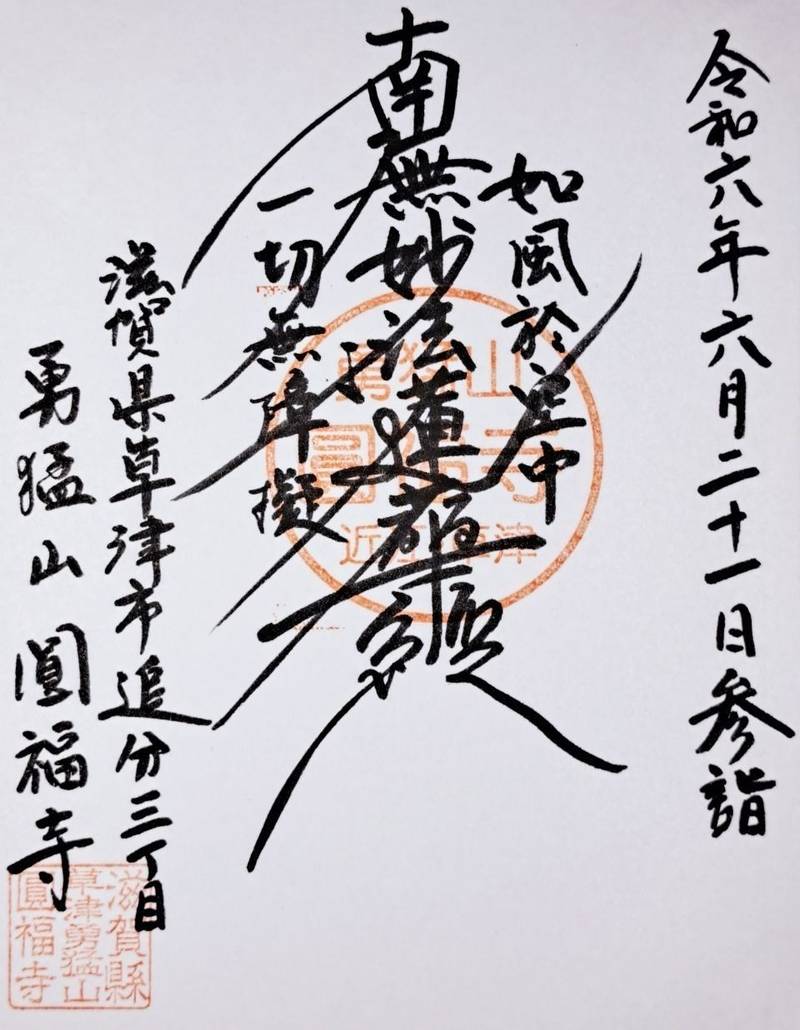 令和六年六月二十一日参詣
如風於空中
南無妙法蓮華経
一切無障礙
滋賀県草津市追分三丁目
勇猛山圓福寺
勇猛山
圓福寺
近江草津
滋賀縣
草津勇猛山
圓福寺